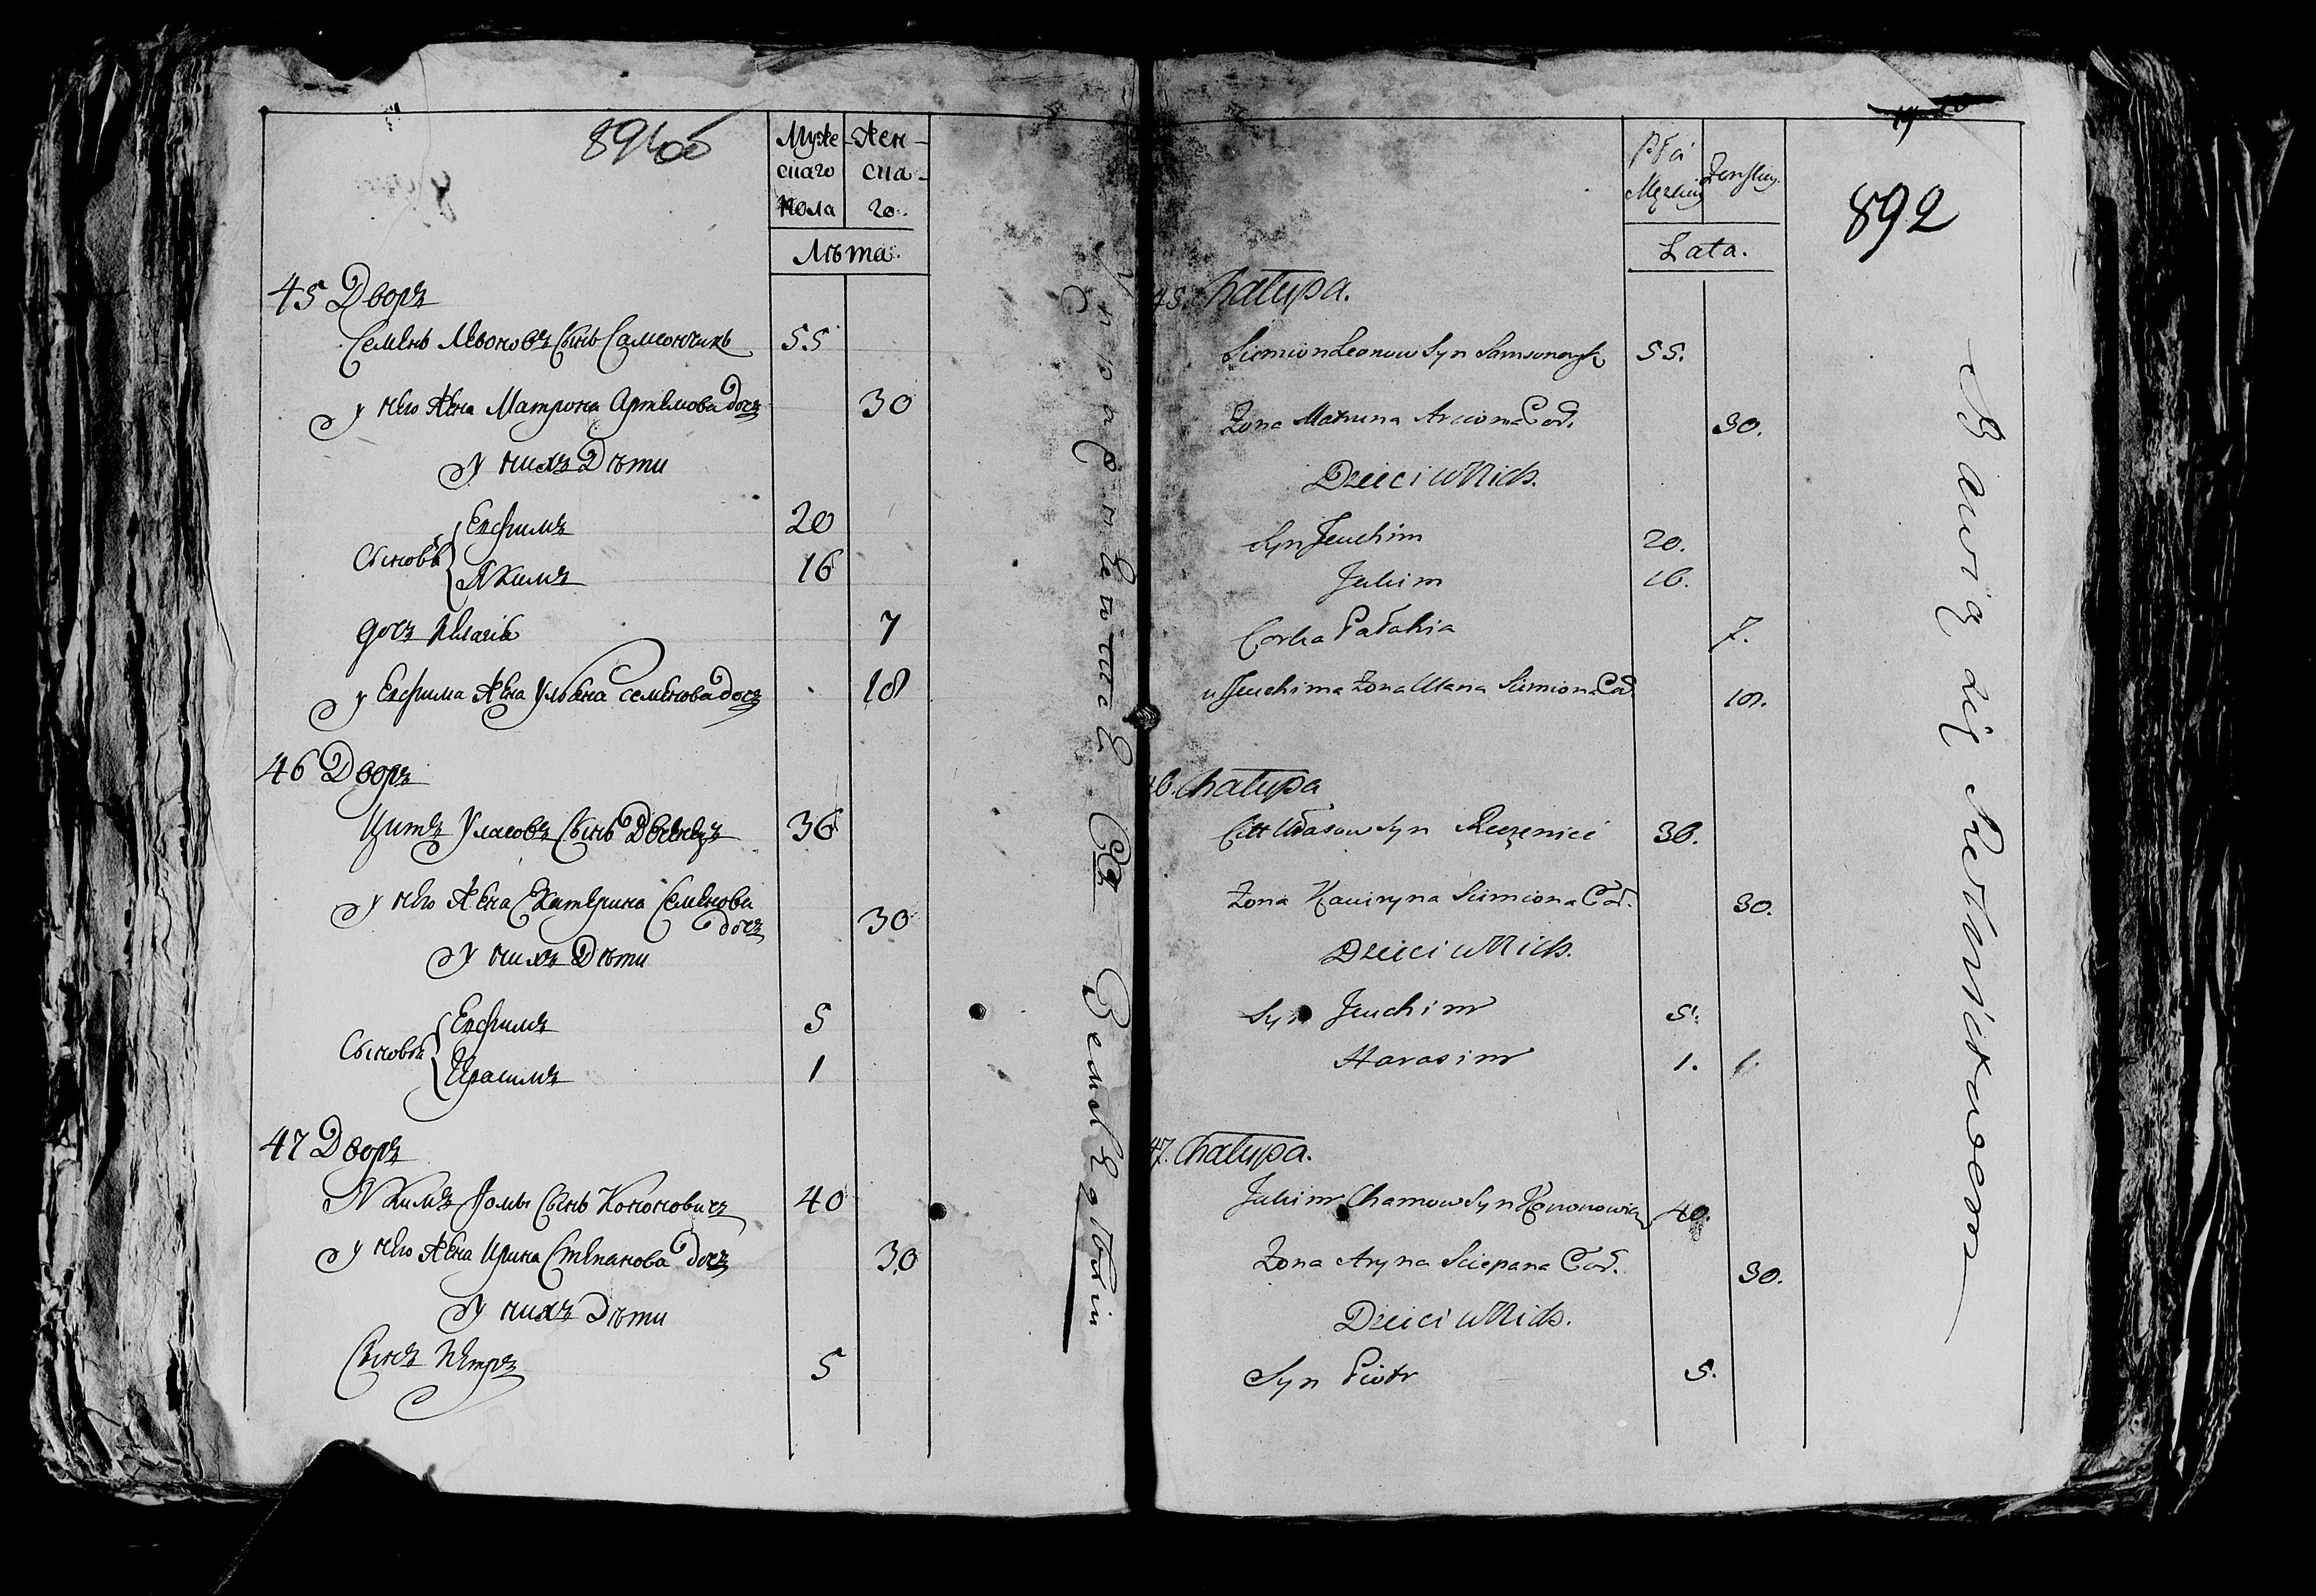 891об
Муже Жен-
скаго ска-
пола го
Лѣта
45 Дворъ
Семенъ Левоновъ Сынъ Самсончикъ 55
у него Жена Матрона Артемова дочь 30
у нихъ Дѣти
Сыновѣ
Евфимъ 20
Якимъ 16
дочь 7
у Евфима Жена Ульяна Семенова дочь 18
46 Дворъ
Цитъ Уласовъ Сынъ 36
у него Жена Катерина Семенова
дочь 30
у нихъ Дѣти
Сыновѣ
Евфимъ 5
Ирасимъ 1
47 Дворъ
Якимъ Хомы Сынъ Кононовичъ 40
у него Жена Ирина Степанова дочь 30
у нихъ Дѣти
Сынъ Петръ 5
Землею
892
Płci
Męzkiey Zenskiey
Lata.
45. Chałupa.
Siemion Leonow Syn 55.
Zona Matruna Arcioma Cor. 30.
Dzieci u Nich.
Syn Jeuchim 20.
Jakim 16.
Corka Pałahia 7.
u Jeuchima Zona Ulana Siemiona Cor. 18.
46. Chałupa
Citt Ułasow Syn 36.
Zona Kaciryna Siemiona Cor. 30.
Dzieci u Nich.
Syn Jeuchim 5.
Harasim 1.
47. Chałupa.
Jakim Chamow Syn Kononowicz 40.
Zona Aryna Sciepana Cor. 30.
Dzieci u Nich.
Syn Piotr 5.
Bawią się